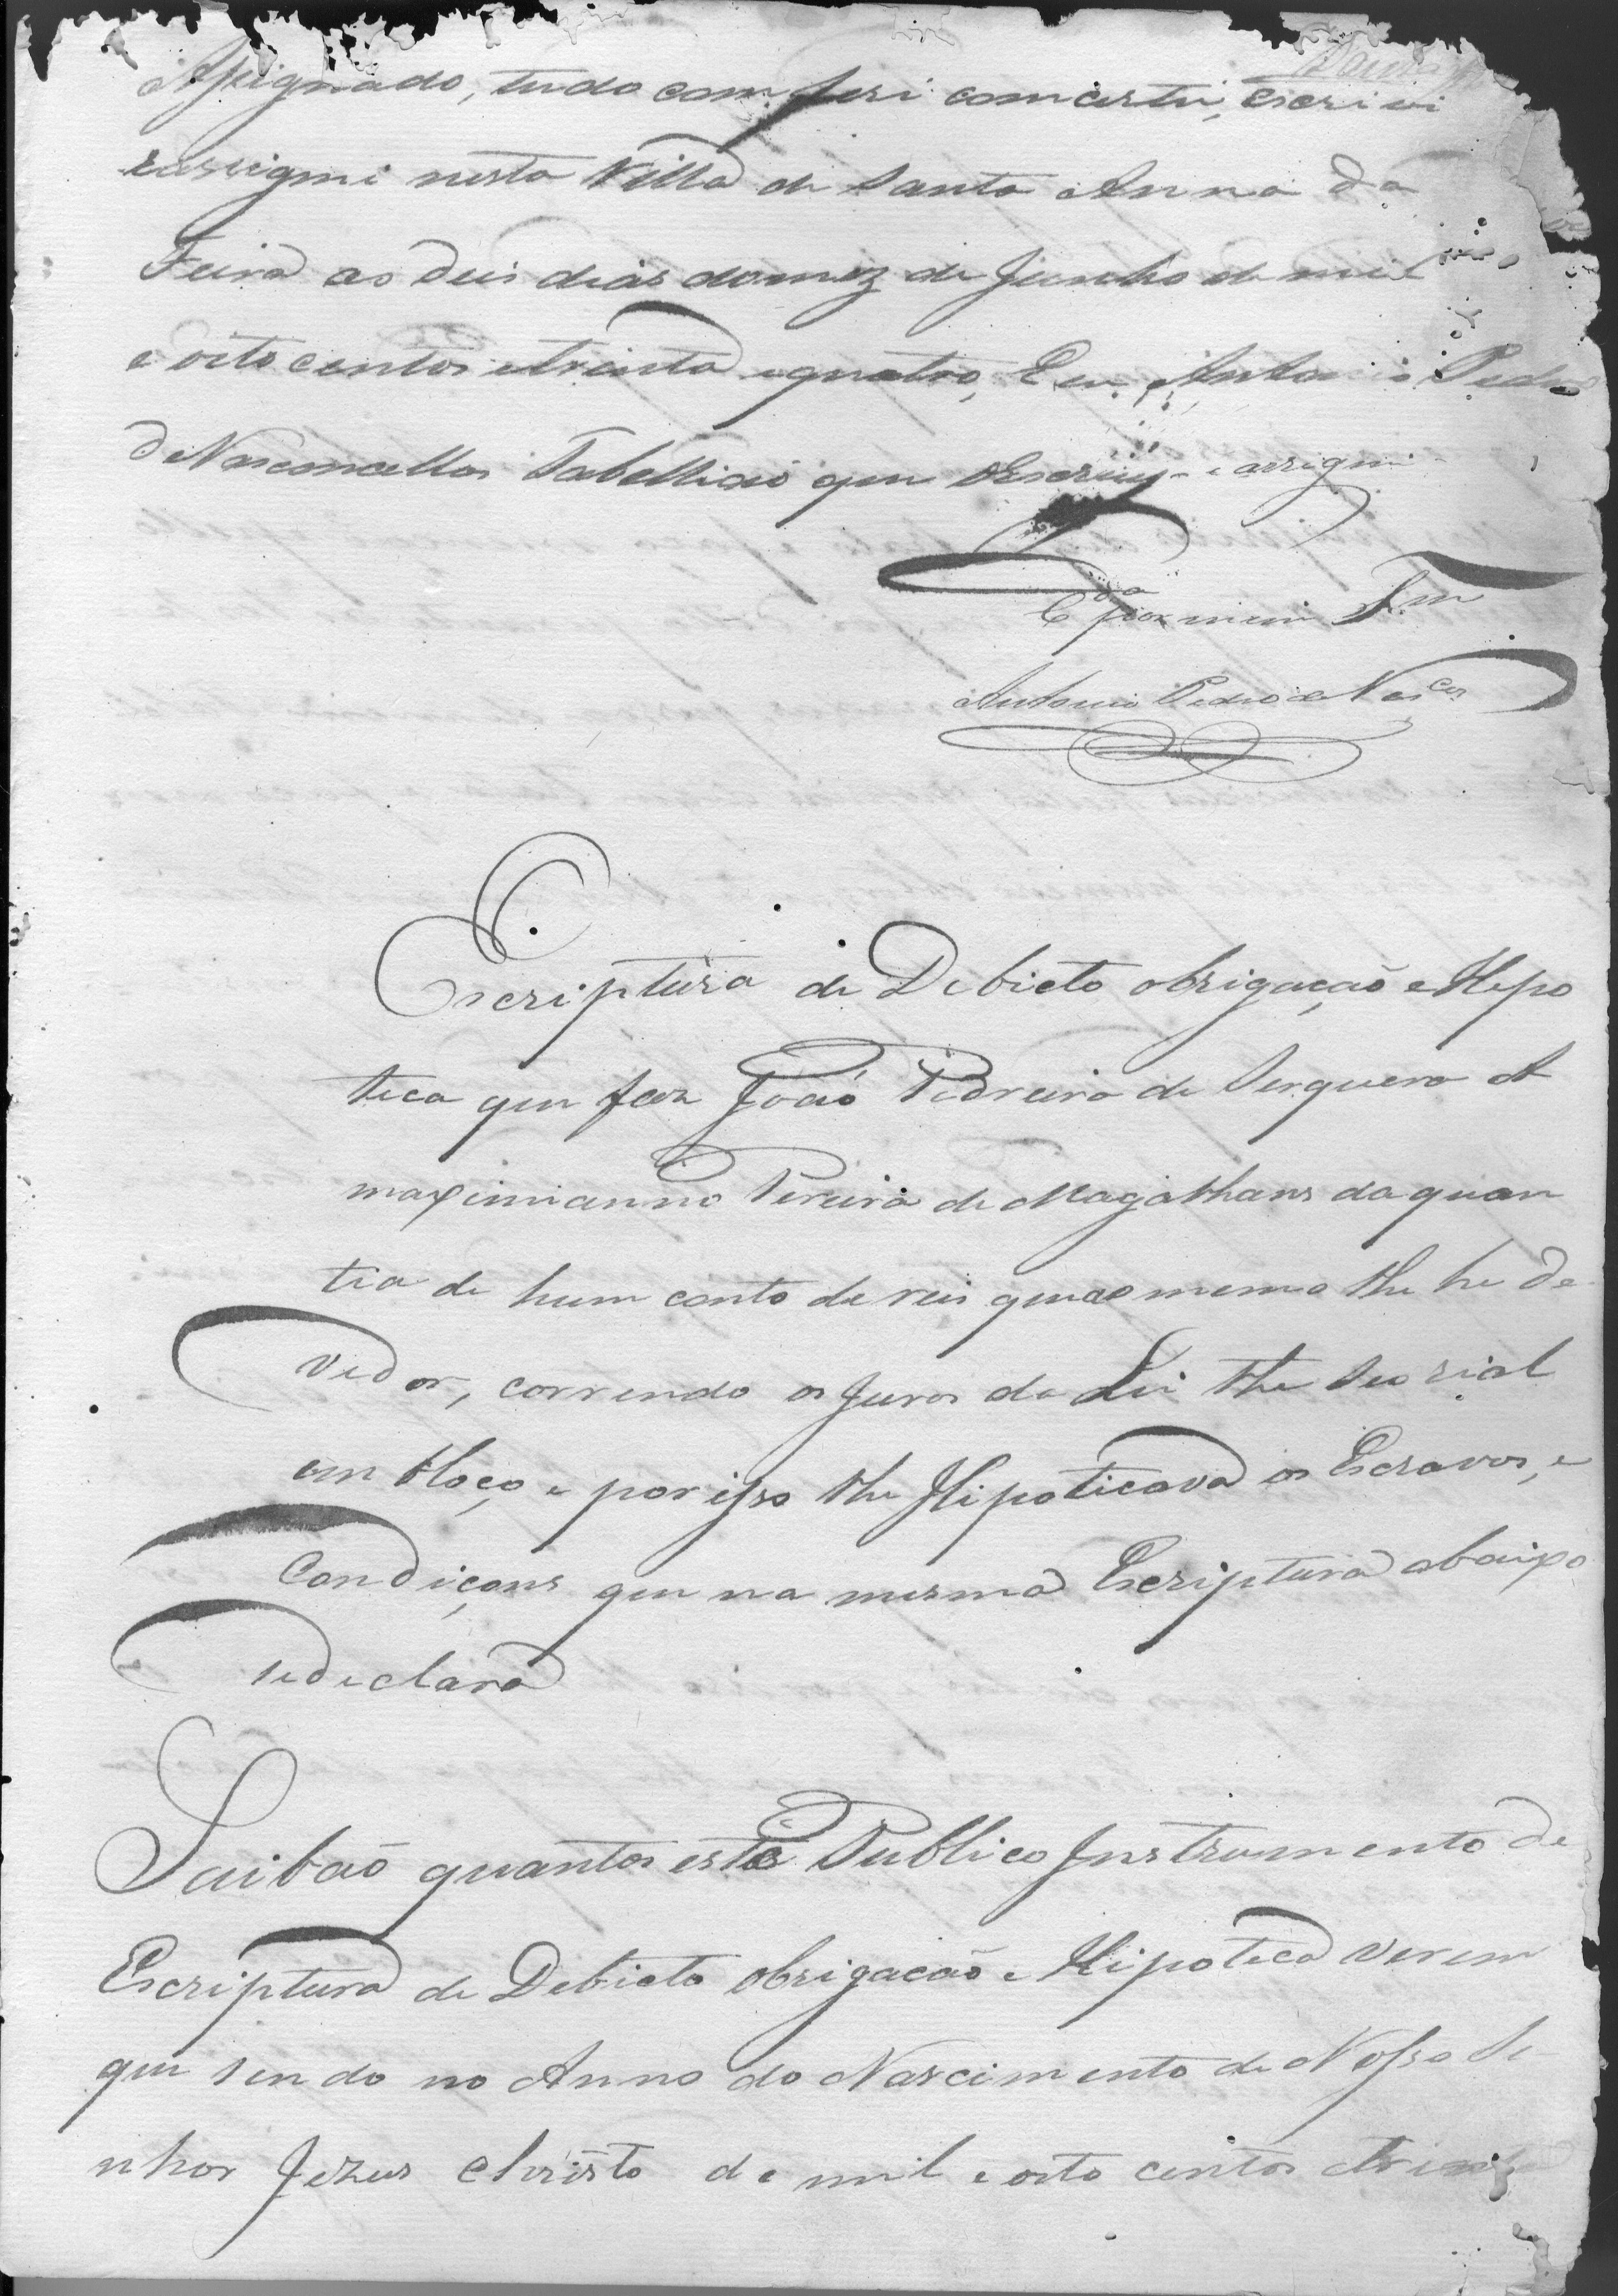 Assignado, tudo comferi comcertei, escrivi
eassignei nesta Villa de Santa Anna da
Feira ao deis dias domez de Junho de mil
e oito centos etrinta equatro, Eeu Antonio Pedro
de Vasconcellos Tabelliaõ que oEscrivy e assignei
C.da por mim T.am
Antonio Pedro de Vas.cos
Escriptura de Debicto obrigaçaõ e Hepo
teca que faz Joaõ Pedreira de Serquera A
maximianno Pereira de Magalhans da quan
tia de hum conto de reis que ao mesmo lhe he de
vedor, correndo os Juros da Lei the seo rial
em bloço e por isso lhe Hipoticava os Escravos, e
Condiçons que na mesma Escriptura abaixo
sedeclara
Saibaõ quantos este Publico Instrumento de
Escriptura de Debicto obrigacaõ e Hipoteca virem
que sendo no Anno do Nascimento de Nosso Se-
nhor Jezus Christo de mil e oito centos etrinta